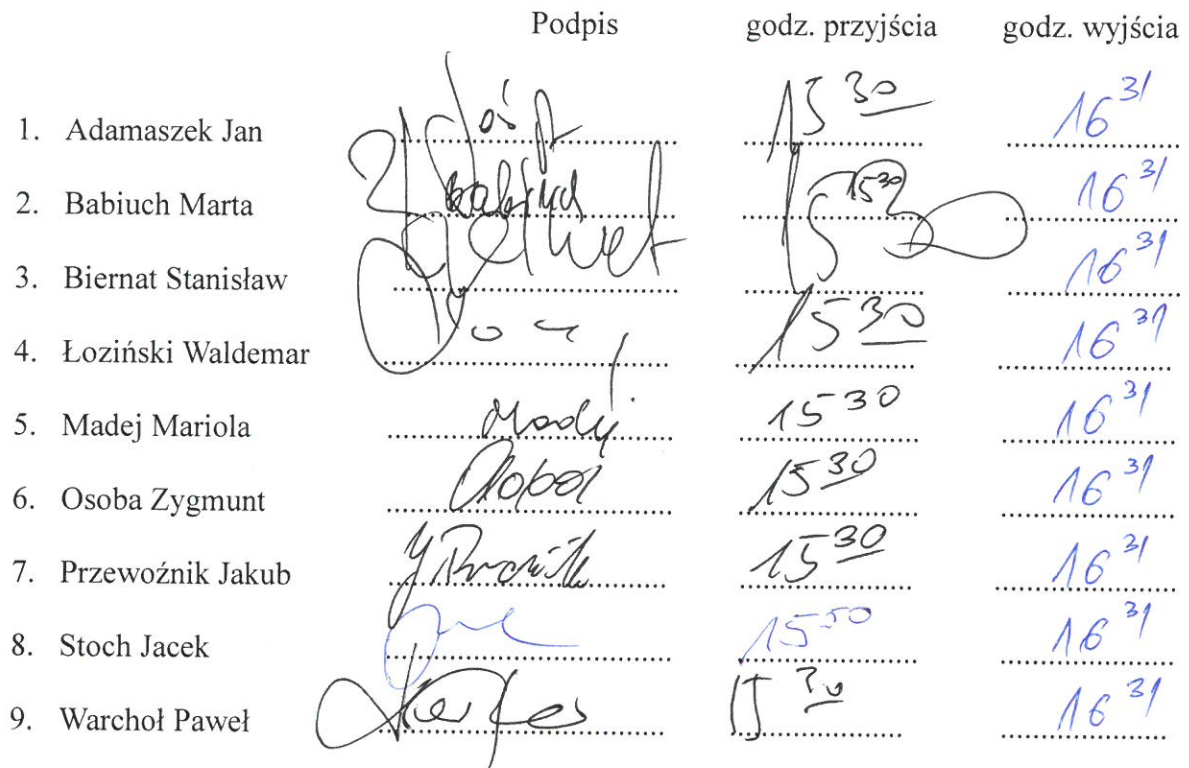 Podpis godz. przyjścia godz. wyjścia
1. Adamaszek Jan 15 30 16 31
2. Babiuch Marta Babiuch 15 30 16 31
3. Biernat Stanisław 16 31
4. Łoziński Waldemar 15 30 16 31
5. Madej Mariola Madej 15 30 16 31
6. Osoba Zygmunt 15 30 16 31
7. Przewoźnik Jakub 15 30 16 31
8. Stoch Jacek 15 50 16 31
9. Warchoł Paweł 15 30 16 31